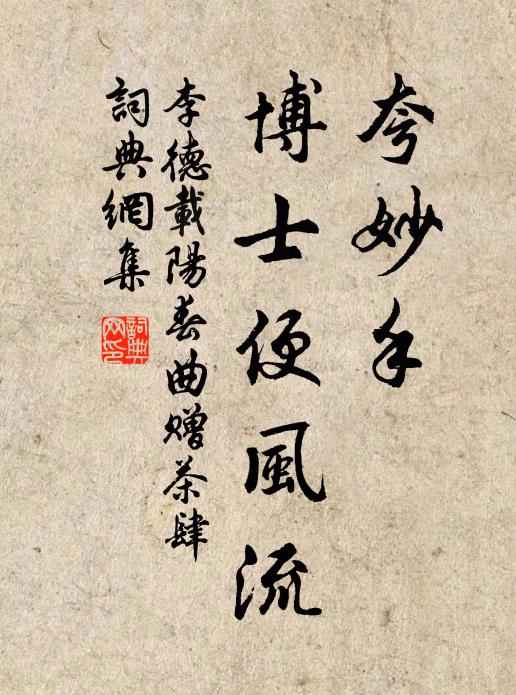 夸妙手
博士便風流
李德載陽春曲贈茶肆
詞典網集
詞典網印